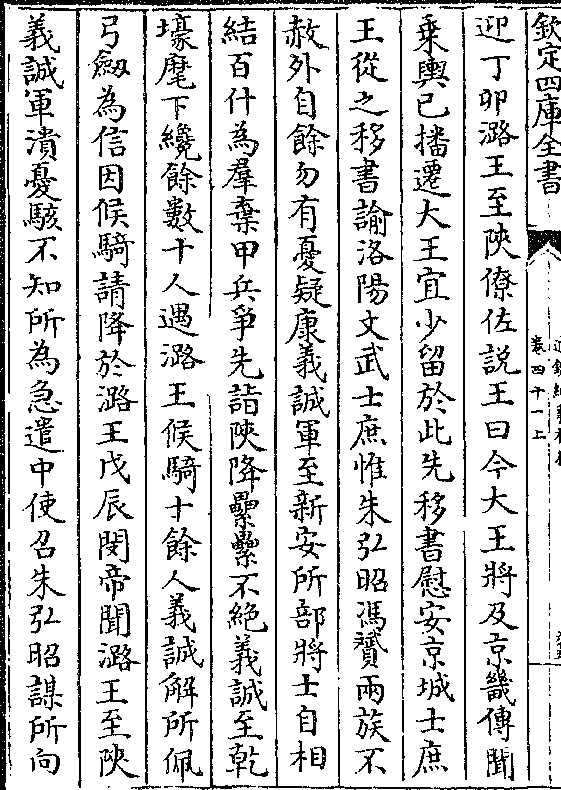 欽定四庫全書
卷四十一上
迎丁卯潞王至陝僚佐説王曰今大王將及京畿傳聞
乗輿已播遷大王宜少留於此先移書慰安京城士庶
王從之移書諭洛陽文武士庶惟朱弘昭馮贇兩族不
赦外自餘勿有憂疑康義誠軍至新安所部將士自相
結百什為羣棄甲兵爭先詣陝降纍纍不絶義誠至乾
壕麾下纔餘數十人遇潞王候騎十餘人義誠解所佩
弓劔為信因候騎請降於潞王戊辰閔帝聞潞王至陝
義誠軍潰憂駭不知所為急遣中使召朱弘昭謀所向